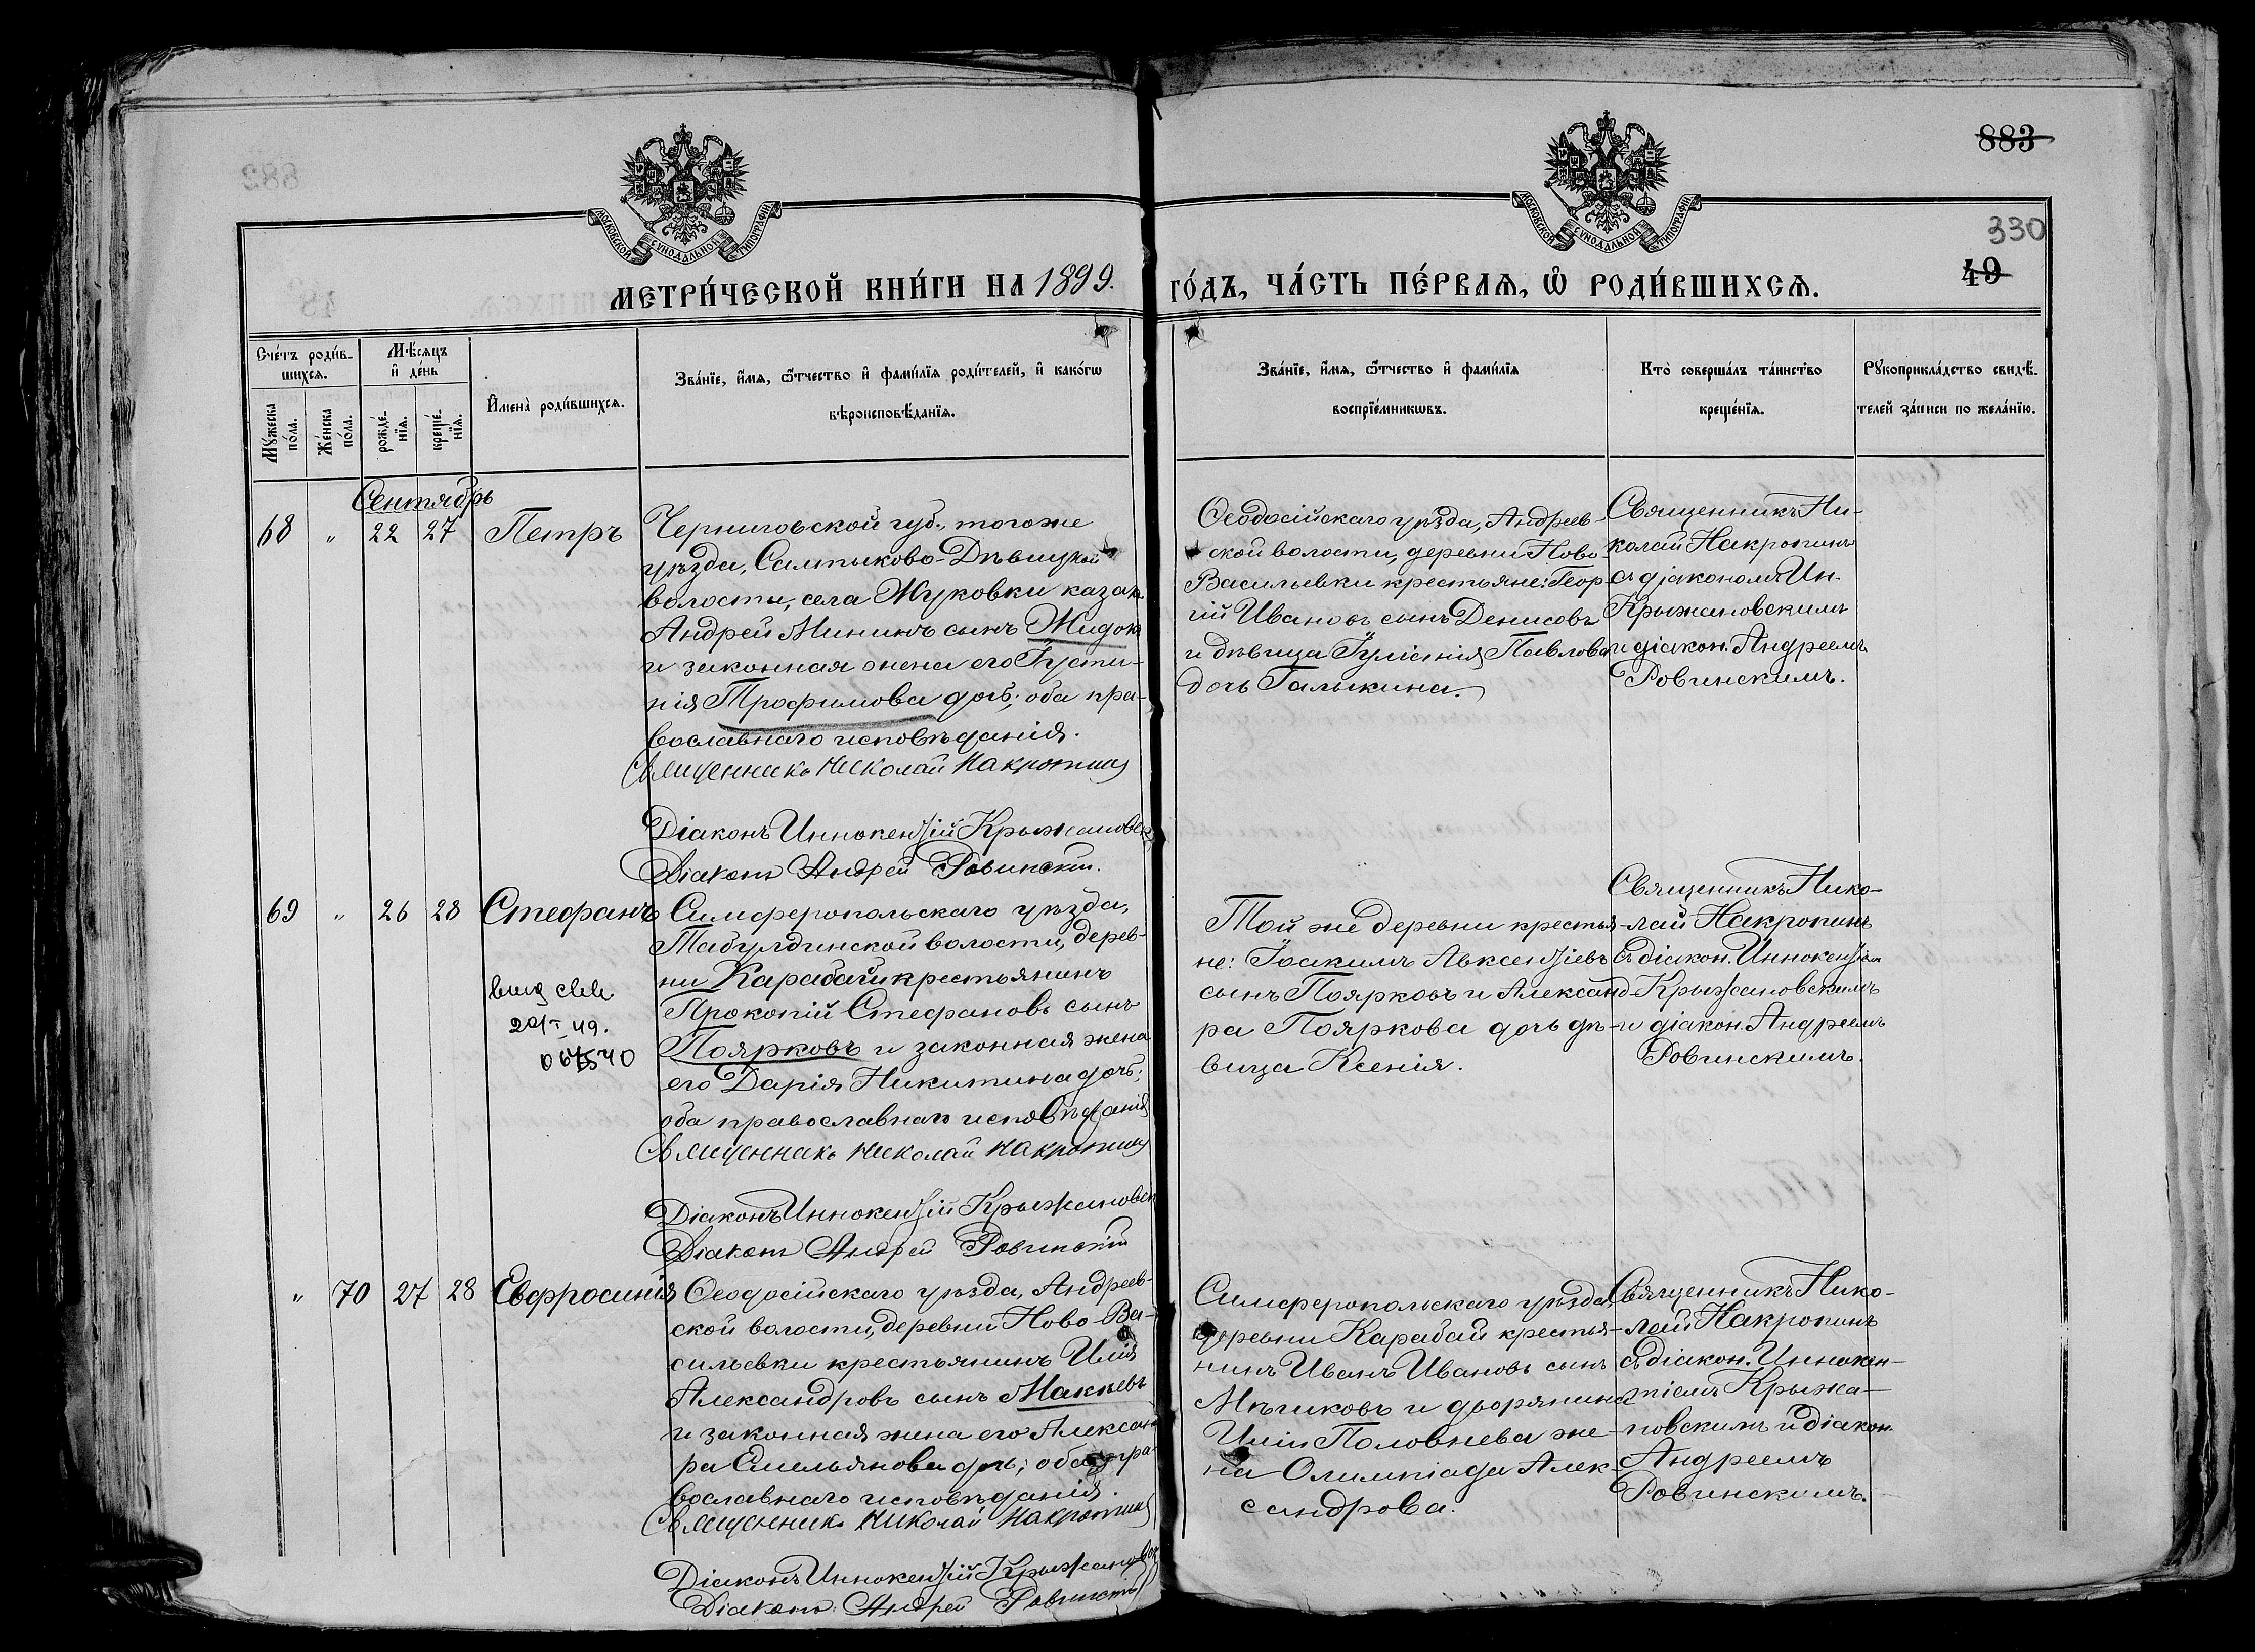 883
330
49
МОСКОВСКОЙ СѴНОДАЛЬНОЙ ТИПОГРАФІИ
МОСКОВСКОЙ СѴНОДАЛЬНОЙ ТИПОГРАФІИ
МЕТРИ́ЧЕСКОЙ КНИ́ГИ НА 1899. ГО́ДЪ, ЧА́СТЬ ПЕ́РВАѦ, Ѽ РОДИ́ВШИХСѦ.
Сче́тъ роди́в-
шихсѧ.
Мꙋ́жеска
по́ла.
Же́нска
по́ла.
Мѣ́сѧцъ
и҆ де́нь
рожде́-
нїѧ.
креще́-
нїѧ.
И҆мена̀ роди́вшихсѧ.
Зва́нїе, и҆́мѧ, ѻ҆́тчество и҆ фами́лїѧ роди́телей, и҆ како́гѡ
вѣроисповѣ́данїѧ.
Зва́нїе, и҆́мѧ, ѻ҆́тчество и҆ фами́лїѧ
воспрїе́мникѡвъ.
Кто̀ соверша́лъ та́инство
креще́нїѧ.
Рꙋкоприкла́дство свидѣ́-
телей за́писи по жела́нїю.
Сентябрь
68 " 22 27 Петръ
Черниговской губ., тогоже
уѣзда, Салтыково-Дѣвицкой
волости, села Жуковки казакъ
Андрей Мининъ сынъ Жидокъ
и законная жена его Іусти-
нія Трофимова дочь; оба пра-
вославнаго исповѣданія.
Священникъ Николай Накропинъ
Діаконъ Иннокентій Крыжановск
Діаконъ Андрей Ровинскій.
Ѳеодосійскаго уѣзда, Андреев-
ской волости, деревни Ново-
Васильевки крестьяне: Геор-
гій Ивановъ сынъ Денисовъ
и дѣвица Іуліанія Павлова
дочь Галыкина.
Священникъ Ни-
колай Накропинъ
съ діакономъ Ин.
Крыжановскимъ
и діакон. Андреемъ
Ровинскимъ.
69 " 26 28 Стефанъ
20/I 49.
Симферопольскаго уѣзда,
Табулдинской волости, дерев-
ни Карабай крестьянинъ
Прокопій Стефановъ сынъ
Поярковъ и законная жена
его Дарія Никитина дочь;
оба православнаго исповѣданія
Священникъ Николай Накропинъ
Діаконъ Иннокентій Крыжановск
Діаконъ Андрей Ровинскій
Той же деревни крестья-
не: Іоакимъ Авксентіевъ
сынъ Поярковъ и Александ-
ра Пояркова дочь дѣ-
вица Ксенія.
Священникъ Нико-
лай Накропинъ
съ діакон. Иннокентіем
Крыжановскимъ
и діакон. Андреемъ
Ровинскимъ.
" 70 27 28 Евфросинія
Ѳеодосійскаго уѣзда, Андреев-
ской волости, деревни Ново-Ва-
сильевки крестьянинъ Илія
Александровъ сынъ Макѣевъ
и законная жена его Александ
ра Емельянова дочь; оба пра-
вославнаго исповѣданія.
Священникъ Николай Накропинъ
Діаконъ Иннокентій Крыжановск
Діаконъ Андрей Ровинскій
Симферопольскаго уѣзда,
деревни Карабай крестья-
нинъ Иванъ Ивановъ сынъ
Мѣшковъ и дворянина
Иліи Половнева же-
на Олимпіада Алек-
сандрова.
Священникъ Нико-
лай Накропинъ
съ діакон. Иннокен-
тіемъ Крыжа-
новскимъ и діакон.
Андреемъ
Ровинскимъ.